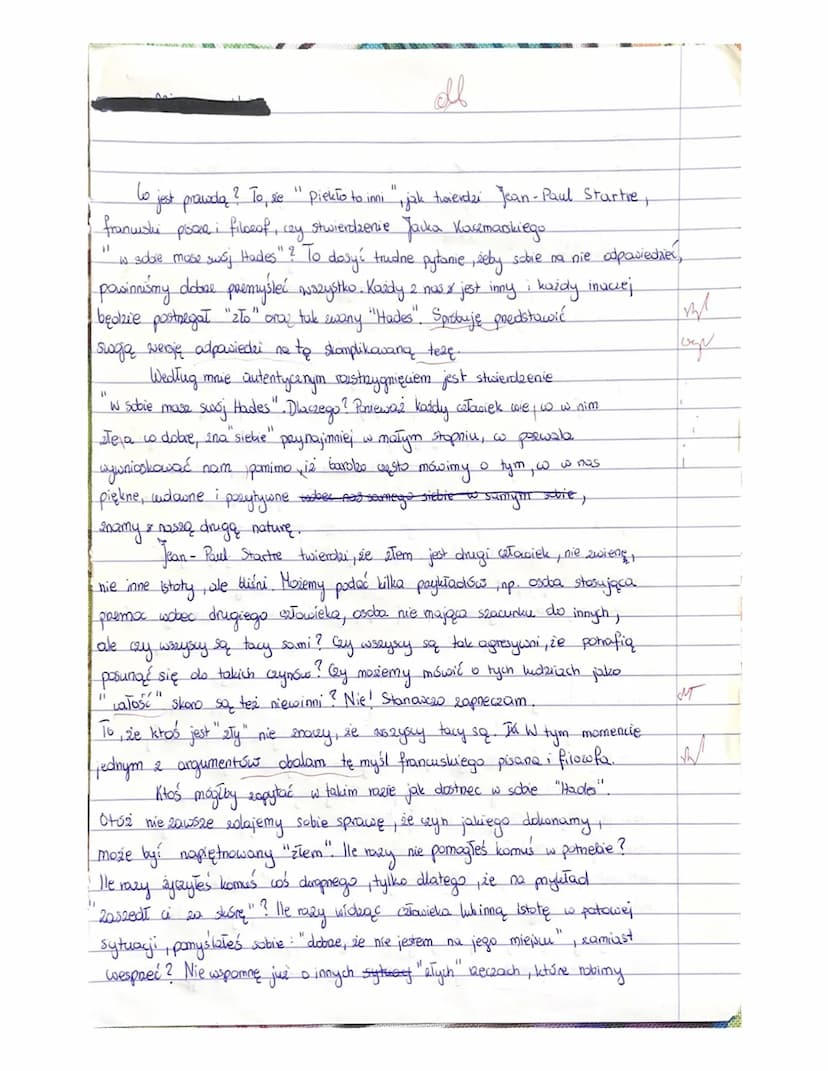 Co jest prawdą? To, że "Piekło to inni", jak twierdzi Jean-Paul Startre,
francuski pisarz i filozof, czy stwierdzenie Jacka Kaczmarskiego
"w sobie masz swój Hades"? To dosyć trudne pytanie, żeby sobie na nie odpowiedzieć,
powinniśmy dobrze przemyśleć wszystko. Każdy z nas jest inny i każdy inaczej
będzie postrzegał "zło" oraz tak zwany "Hades". Spróbuję przedstawić
swoją wersję odpowiedzi na tę skomplikowaną tezę.
Według mnie autentycznym rozstrzygnięciem jest stwierdzenie
"W sobie masz swój Hades". Dlaczego? Ponieważ każdy człowiek wie, co w nim
złego co dobre, zna "siebie" przynajmniej w małym stopniu, co pozwala
wywnioskować nam, pomimo, iż bardzo często mówimy o tym, co w nas
piękne, cudowne i pozytywne wobec nas samego siebie w samym sobie,
znamy z naszą drugą naturę.
Jean-Paul Startre twierdzi, że złem jest drugi człowiek, nie zwierzę,
nie inne istoty, ale bliźni. Możemy podać kilka przykładów, np. osoba stosująca
przemoc wobec drugiego człowieka, osoba nie mająca szacunku do innych,
ale czy wszyscy są tacy sami? Czy wszyscy są tak agresywni, że potrafią
posunąć się do takich czynów? Czy możemy mówić o tych ludziach jako
"całość" skoro są też niewinni? Nie! Stanowczo zaprzeczam.
To, że ktoś jest "zły" nie znaczy, że wszyscy tacy są. W tym momencie
jednym z argumentów obalam tę myśl francuskiego pisarza i filozofa.
Ktoś mógłby zapytać w takim razie jak dostrzec w sobie "Hades".
Otóż nie zawsze zdajemy sobie sprawę, że czyn jakiego dokonamy,
może być napiętnowany "złem". Ile razy nie pomogłeś komuś w potrzebie?
Ile razy życzyłeś komuś coś okropnego, tylko dlatego, że na przykład
"zaszedł ci za skórę"? Ile razy widząc człowieka lub inną istotę w patowej
sytuacji, pomyślałeś sobie: "dobrze, że nie jestem na jego miejscu", zamiast
wesprzeć? Nie wspomnę już o innych sytuacj "złych" rzeczach, które robimy